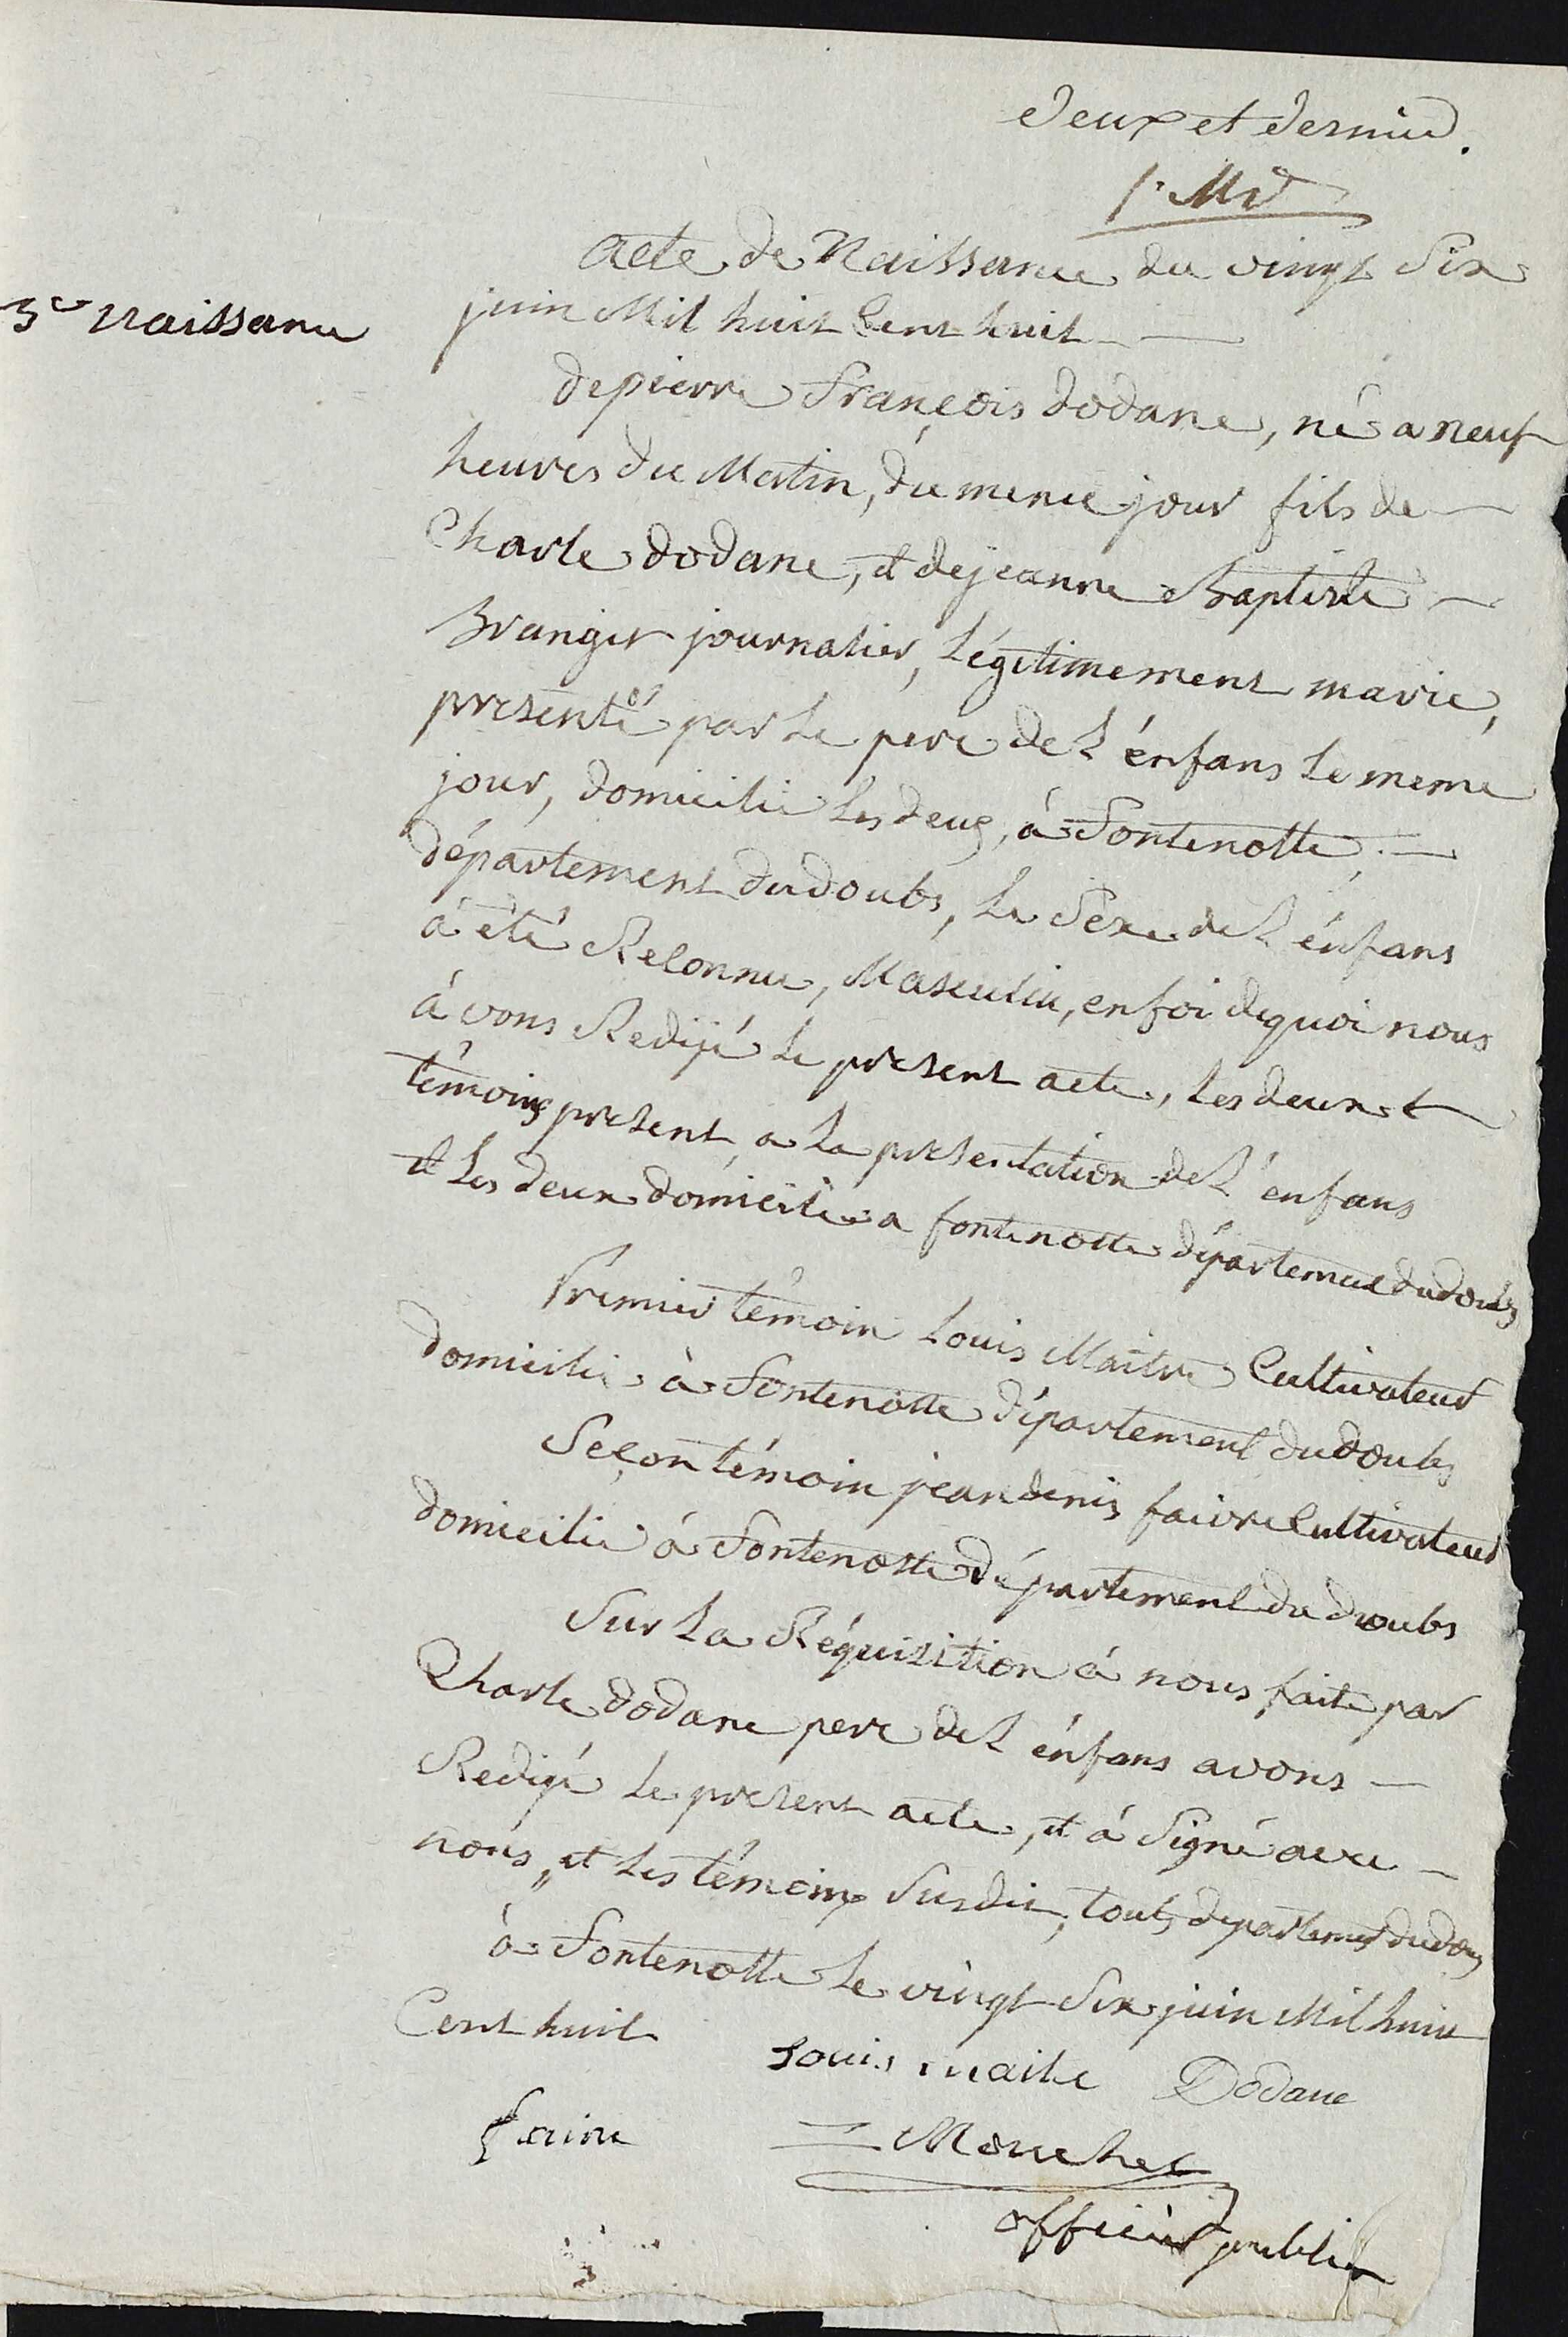 deux et dernier.
acte de Naissance du vingt Six
3e Naissance
juin Mil huit Cent huit
de pierre François dodane, né a neuf
heures du Matin, du meme jour fils de
Charle dodane, et de jeanne Baptiste
Branger journalier, Légitimement marié,
presenté par Le pere de L'énfans Le meme
jour, domicilié Les deux, à Fontenotte,
département du doubs, Le Sexe de L'énfans
à été Reconnu, Masculin, en foi de quoi nous
àvons Redijé Le present acte, Les deux
témoins present a La presentation de L'énfans
et Les deux domicilié a fontenotte département du doubs
Premier témoin Louis Maitre Cultivateur
domicilié à Fontenotte département du doubs
Seçon témoin jean denis faivre Cultivateur
domicilié à Fontenotte département du doubs
Sur La Réquisition à nous faite par
Charle dodane pere de L'énfans avons
Redigé Le present acte, et à Signé avec
nous, et Les témoins Susdit, tout departement du doubs
à Fontenotte Le vingt Six juin Mil huit
Cent huit
Louis maitre Dodane
faivre Mouchet
officier public